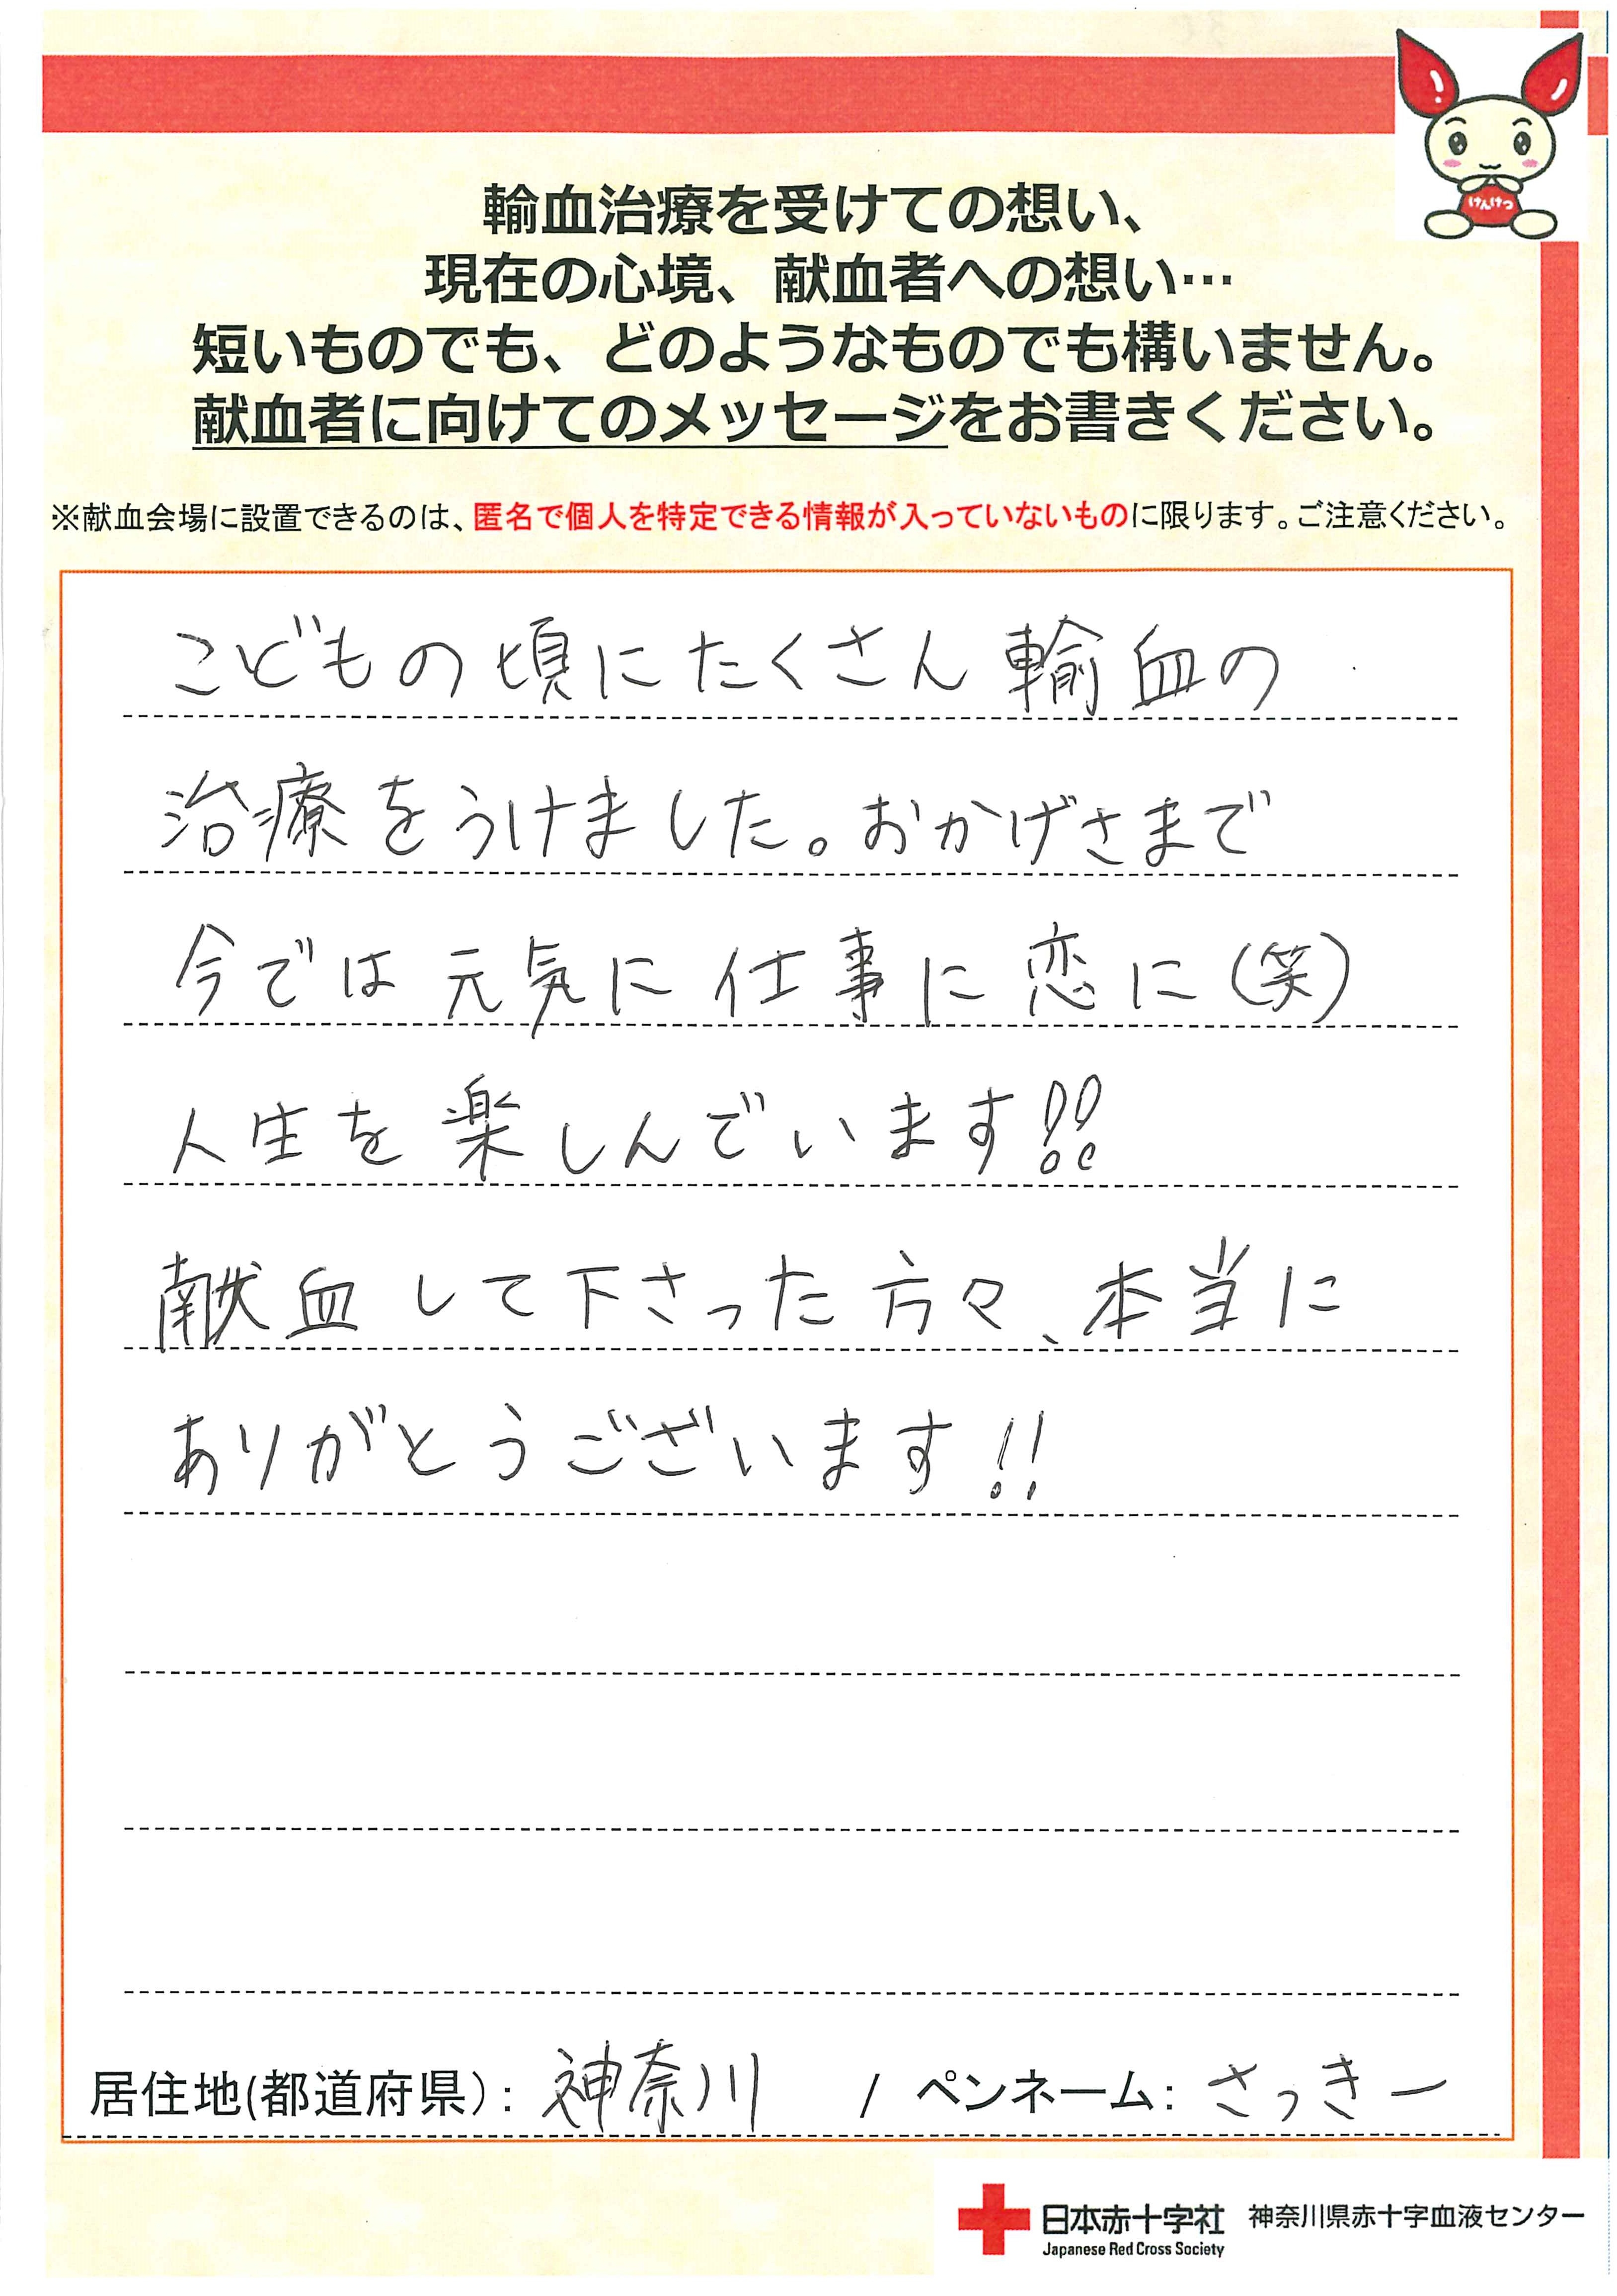 けんけつ
輸血治療を受けての想い、
現在の心境、献血者への想い…
短いものでも、どのようなものでも構いません。
献血者に向けてのメッセージをお書きください。
※献血会場に設置できるのは、匿名で個人を特定できる情報が入っていないものに限ります。ご注意ください。
こどもの頃にたくさん輸血の
治療をうけました。おかげさまで
今では元気に仕事に恋に(笑)
人生を楽しんでいます!!
献血して下さった方々、本当に
ありがとうございます!!
居住地(都道府県):神奈川 / ペンネーム:さっきー
日本赤十字社 神奈川県赤十字血液センター
Japanese Red Cross Society